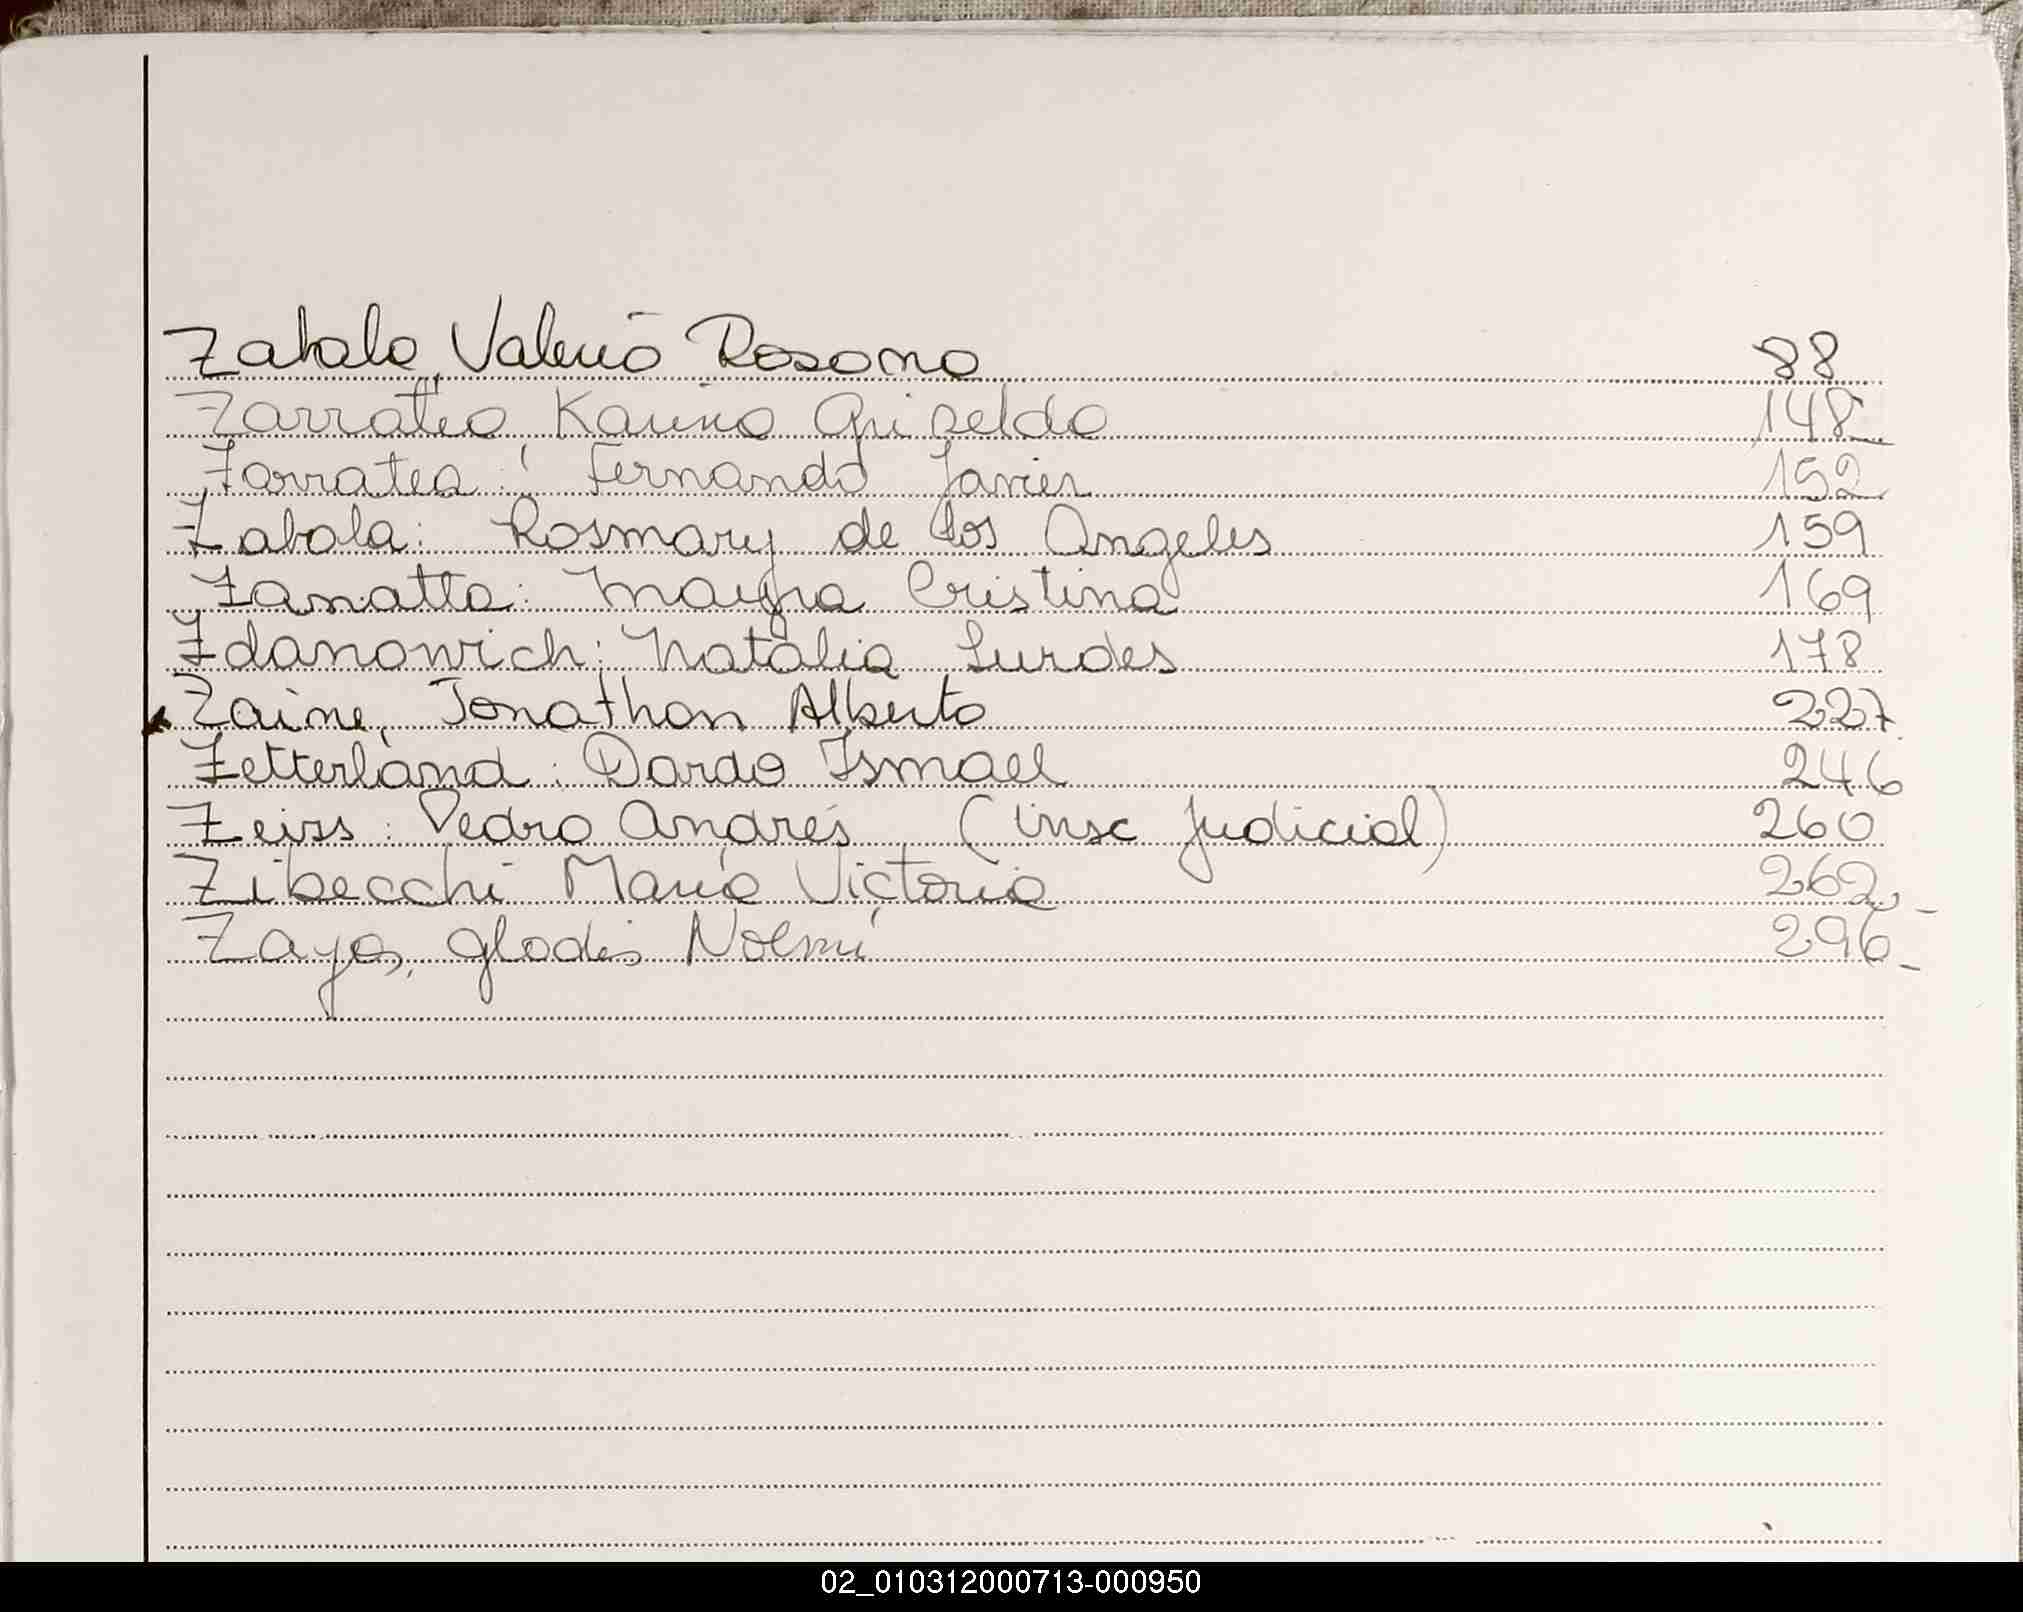 Zabala, Valeria Rosana 88
Zarratea, Karina Griselda 148
Zarratea: Fernando Javier 152
Zabala: Rosmary de los Angeles 159
Zanatta: Mayra Cristina 169
Zdanowich: Natalia Lurdes 178
Zaine, Jonathan Alberto 227
Zetterland: Dardo Ismael 246
Zeiss: Pedro Andrés (insc Judicial) 260
Zibecchi María Victoria 262-
Zayas, Gladis Noemí 296-
02_010312000713-000950